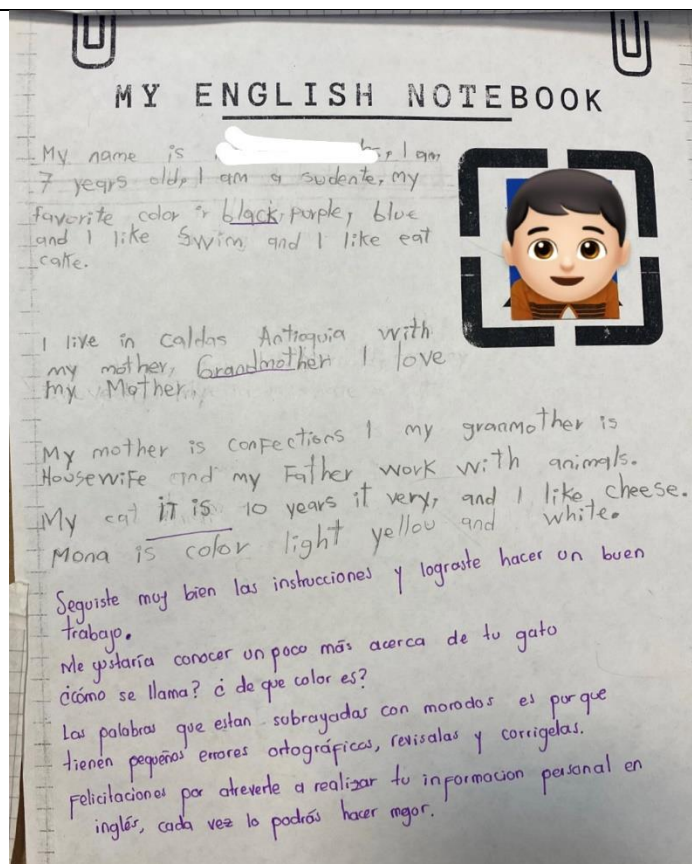 MY ENGLISH NOTEBOOK
My name is , I am
7 years old, I am a sudente, my
favorite color is black, purple, blue
and I like Swim and I like eat
cake.
I live in caldas Antioquia with
my mother, Grandmother I love
my Mother,
My mother is confections I my granmother is
Housewife and my Father work with animals.
My cat iT is 10 years it very, and I like cheese.
Mona is color light yellow and white.
Seguiste muy bien las instrucciones y lograste hacer un buen
trabajo.
Me gustaría conocer un poco más acerca de tu gato
¿cómo se llama? ¿ de que color es?
Las palabras que estan subrayadas con morados es por que
tienen pequeños errores ortográficos, revisalas y corrigelas.
Felicitaciones por atreverte a realizar tu informacion personal en
inglés, cada vez lo podrás hacer mejor.